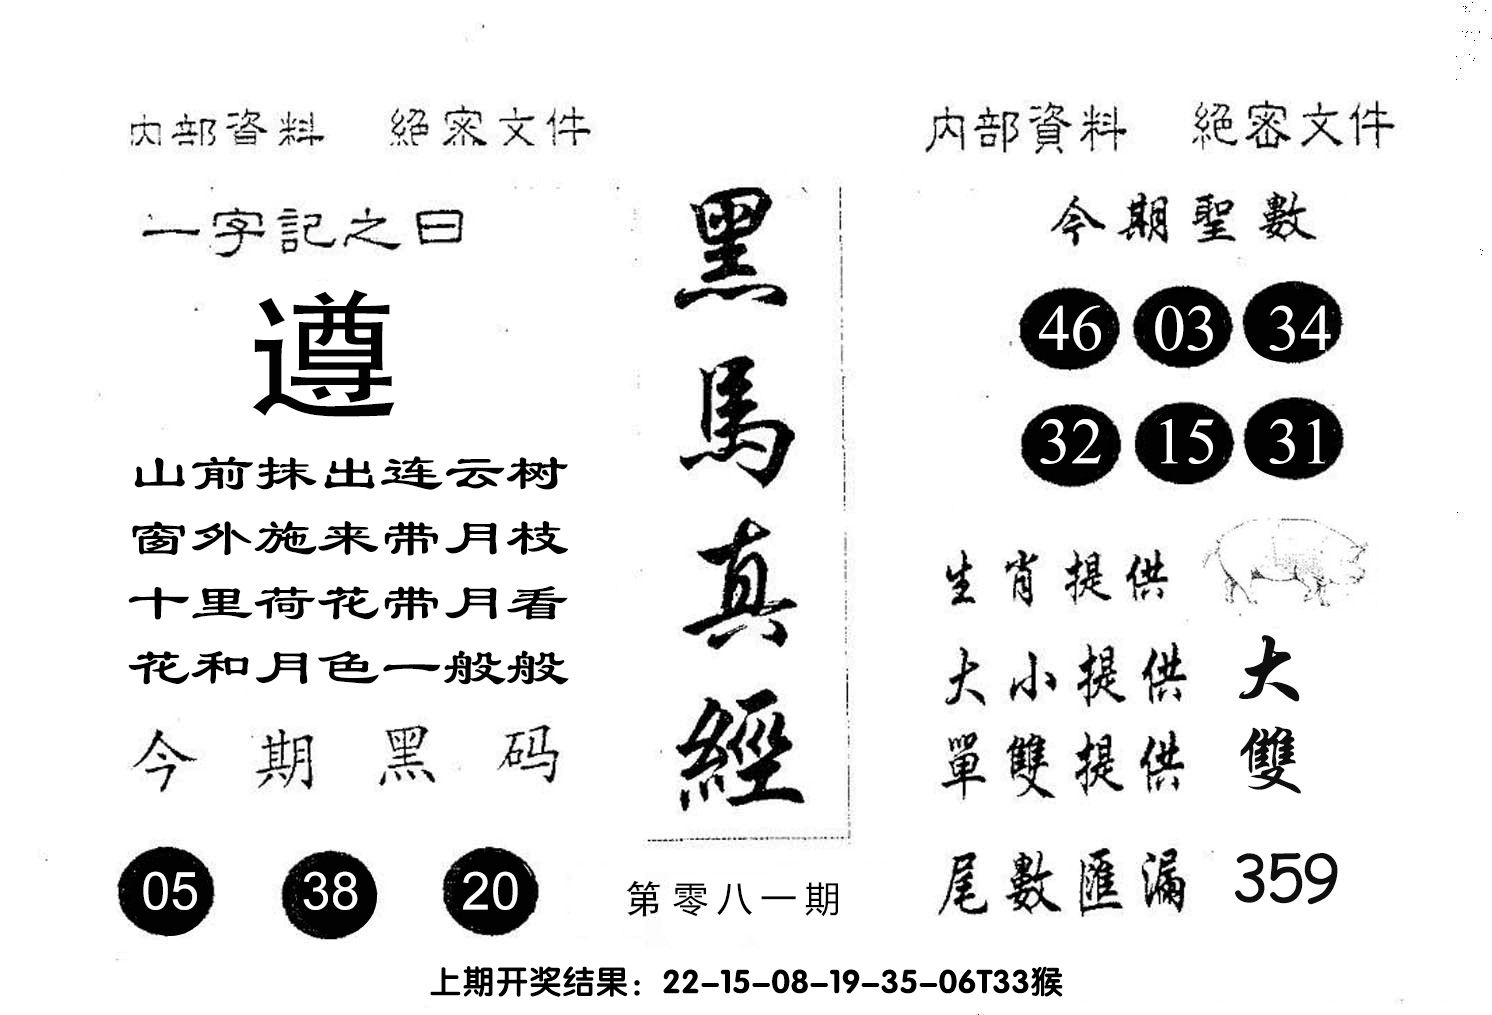 内部資料 絕密文件
一字記之曰
遵
山前抹出连云树
窗外施来带月枝
十里荷花带月看
花和月色一般般
今期黑码
05 38 20
黑馬真經
第零八一期
内部資料 絕密文件
今期聖數
46 03 34
32 15 31
生肖提供
大小提供 大
單雙提供 雙
尾數匯漏 359
上期开奖结果：22-15-08-19-35-06T33猴